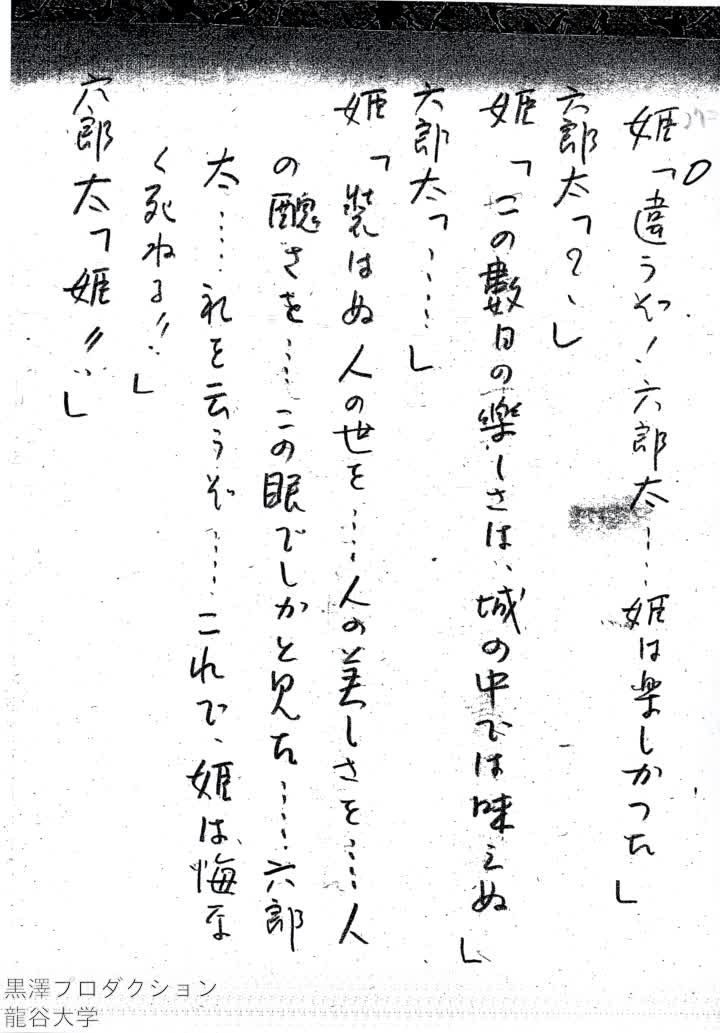 姫「違うぞ！六郎太……姫は楽しかった」
六郎太「？、」
姫「この數日の楽しさは、城の中では味えぬ」
六郎太「……」
姫「装はぬ人の世を……人の美しさを……人
の醜さを……この眼でしかと見た……六郎
太……礼を云うぞ……これで、姫は、悔な
く死ねる!!」
六郎太「姫!!」
黒澤プロダクション
龍谷大学